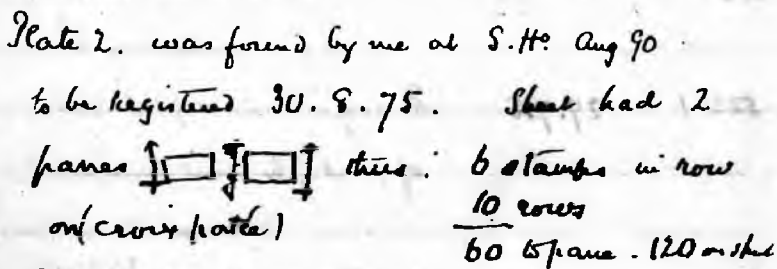 Plate 2. was found by me at S.Ho. Aug 90
to be registered 30.8.75. Sheet had 2
panes thus: 6 stamps in row
on (croix patée) 10 rows
60 to pane. 120 on sheet